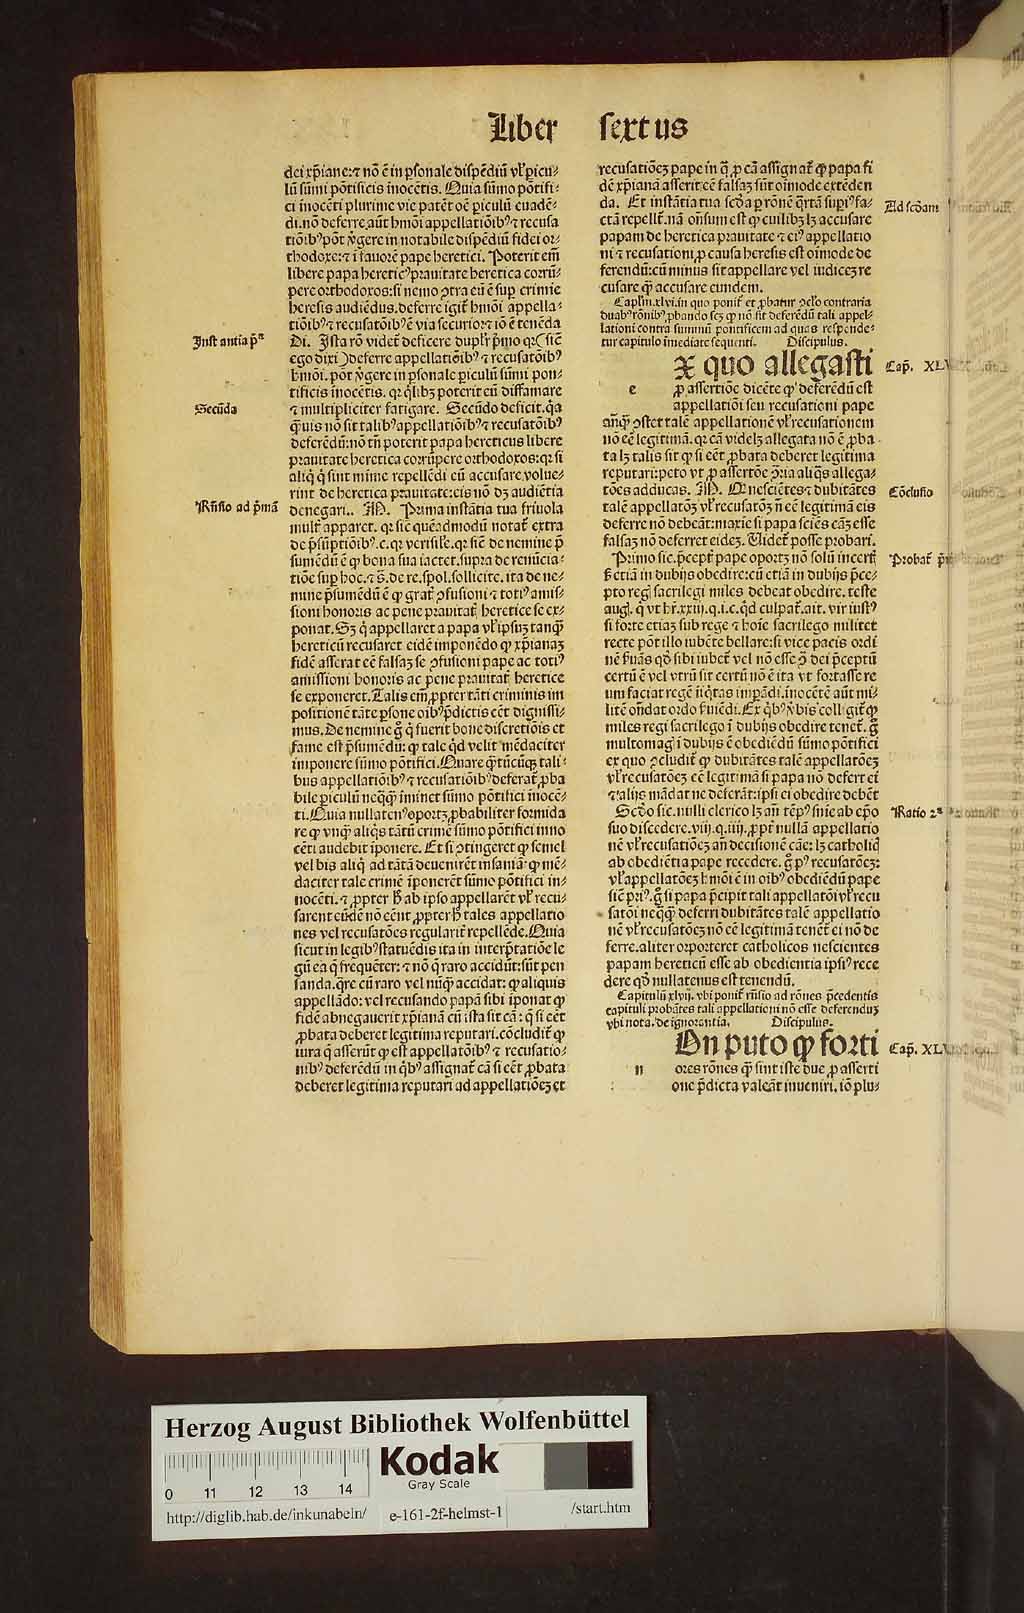 Liber sextus
dei xp̄iane: ⁊ nō ē in ꝑsonale dispēdiū vl̓ ꝑicu⸗
lū sūmi pōtificis inocētis. Quia sūmo pōtifi⸗
ci inocēti plurime vie patēt oē ꝑiculū euadē⸗
di. nō deferre aūt hmōi appellatiōibꝰ ⁊ recusa
tiōibꝰ pōt v̓gere in notabile dispēdiū fidei or⸗
thodoxe: ⁊ i fauorē pape heretici. Poterit em̄
libere papa hereticꝰ prauitate heretica corrū⸗
pere orthodoxos: si nemo ꝯtra eū ē suꝑ crimīe
heresis audiēdus. deferre igit̄ hmōi appella⸗
tiōibꝰ ⁊ recusatōibꝰ ē via securior: ⁊ iō ē tenēda
Inst antia p̄ᵃ
Di. Ista rō videt̄ deficere duplr̄ p̄mo qꝛ (sic̄
ego dixi) deferre appellatiōibꝰ ⁊ recusatōibꝰ
hmōi. pōt v̓gere in ꝑsonale ꝑiculū sūmi pon⸗
tificis inocētis. qꝛ q̇libꝫ poterit eū diffamare
Secūda
⁊ multipliciter fatigare. Secūdo deficit. q̇a
q̄uis nō sit talibꝰ appellatiōibꝰ ⁊ recusatōibꝰ
deferēdū: nō tn̄ poterit papa hereticus libere
prauitate heretica corrūpere orthodoxos: qꝛ si
aliq̇ q̇ sunt mīme repellēdi eū accusare volue⸗
rint de heretica prauitate: eis nō dꝫ audiētia
Rn̄sio ad p̄mā
denegari.. M. Prima instātia tua friuola
mult̄ apparet. qꝛ sic̄ quēadmodū notat̄ extra
de p̄sūptiōibꝰ. c. qꝛ verisil̓e. qꝛ sic̄ de nemine p̄
sumēdū ē ꝙ bona sua iactet. supra de renūcia⸗
tiōe suꝑ hoc. ⁊ s̄. de re. spol. sollicite. ita de ne⸗
mine p̄sumēdū ē ꝙ grat̄ ꝯfusioni ⁊ totiꝰ amis⸗
sioni honoris ac pene prauitat̄ heretice se ex⸗
ponat. Sꝫ q̇ appellaret a papa vl̓ ipsuꝫ tanq̄
hereticū recusaret eidē imponēdo ꝙ xp̄ianaꝫ
fidē asserat eē falsaꝫ se ꝯfusioni pape ac totiꝰ
amissioni honoris ac pene prauitat̄ heretice
se exponeret. Talis em̄ ꝓpter tāti criminis im
positionē tāte ꝑsone oibꝰ p̄dictis eēt dignissi⸗
mus. De nemine g̊ q̇ fuerit bone discretiōis et
fame est p̄sumēdū: ꝙ tale q̇d velit mēdaciter
imponere sūmo pōtifici. Quare q̄tūcūqꝫ tali⸗
bus appellatiōibꝰ ⁊ recusatiōibꝰ deferat̄ ꝓba
bile ꝑiculū neq̄q̄ iminet sūmo pōtifici inocē⸗
ti. Quia nullatenꝰ oportꝫ ꝓbabiliter formida
re ꝙ vnq̄ aliq̇s tātū crimē sūmo pōtifici inno
cēti audebit īponere. Et si ꝯtingeret ꝙ semel
vel bis aliq̇ ad tātā deuenirēt insaniā ꝙ mē⸗
daciter tale crimē īponerēt sūmo pōtifici in⸗
nocēti. ⁊ ꝓpter h̊ ab ipso appellarēt vl̓ recu⸗
sarent eūdē nō eēnt ꝓpter h̊ tales appellatio
nes vel recusatōes regularit̄ repellēde. Quia
sicut in legibꝰ statuēdis ita in interp̄tatiōe le
gū ea q̄ frequēter: ⁊ nō q̄ raro accidūt: sūt pen
sanda. q̄re cū raro vel nūq̄ accidat: ꝙ aliquis
appellādo: vel recusando papā sibi īponat ꝙ
fidē abnegauerit xp̄ianā cū ista sit cā: q̄ si eēt
ꝓbata deberet legitima reputari. cōcludit̄ ꝙ
iura q̄ asserūt ꝙ est appellatōibꝰ ⁊ recusatio⸗
nibꝰ deferēdū in q̇bꝰ assignat̄ cā si eēt ꝓbata
deberet legitima reputari ad appellatiōeꝫ et
recusatiōeꝫ pape in q̄ ꝓ cā assignat̄ ꝙ papa fi
dē xp̄ianā asserit eē falsaꝫ sūt oimode extēden
Ad scd̄am
da. Et instātia tua scd̄a ꝑ rōnē q̄rtā supiꝰ fa⸗
ctā repellit̄. nā on̄sum est ꝙ cuilibꝫ lꝫ accusare
papam de heretica prauitate ⁊ eiꝰ appellatio
ni ⁊ recusationi ꝓ causa heresis est oimode de
ferendū: cū minus sit appellare vel iudiceꝫ re
cusare q̄ accusare eundem.
Caplm̄. xlvi. in quo ponit̄ et ꝓbatur ꝯclo̓ contraria
duabꝰ rōnibꝰ ꝓbando scꝫ ꝙ nō sit deferēdū tali appel⸗
lationi contra summū pontificem ad quas respende⸗
tur capitulo īmediate sequenti. Discipulus.
Cap̄. XLV
e
X quo allegasti
ꝓ assertiōe dicēte ꝙ deferēdū est
appellatiōi seu recusationi pape
an̄q̄ ꝯstet talē appellationē vl̓ recusationem
nō eē legitimā. qꝛ cā videlꝫ allegata nō ē ꝓba⸗
ta lꝫ talis sit ꝙ si eēt ꝓbata deberet legitima
reputari: peto vt ꝓ assertōe ꝯ̄ria aliq̇s allega⸗
Cōclusio
tōes adducas. M. Qꝛ nescientes ⁊ dubitātes
talē appellatōꝫ vl̓ recusatōꝫ n̄ eē legitimā eis
deferre nō debeāt: maxīe si papa sciēs cāꝫ esse
falsaꝫ nō deferret eideꝫ. Videt̄ posse probari.
Probat̄
Primo sic. p̄cept̄ pape oportꝫ nō solū incert̄
sꝫ etiā in dubijs obedire: cū etiā in dubijs p̄ce⸗
pto reḡ sacrilegi miles debeat obedire. teste
aug. q̇ vt hr̄. xxiij. q. i. c. q̇d culpat̄. ait. vir iustꝰ
si forte etiaꝫ sub rege ⁊ hoīe sacrilego militet
recte pōt illo iubēte bellare: si vice pacis ordi
nē f̓uās qd̓ sibi iubet̄ vel nō esse ꝯ̄ dei p̄ceptū
certū ē vel vtrū sit certū nō ē ita vt fortasse re
um faciat regē iīq̇tas imꝑādi. inocētē aūt mi⸗
litē on̄dat ordo f̓uiēdi. Ex q̇bꝰ v̓bis colligit̄ ꝙ
miles regi sacrilego ī dubijs obedire tenet̄. g̊
multomag̓ ī dubijs ē obediēdū sūmo pōtifici
ex quo ꝯcludit̄ ꝙ dubitātes talē appellatōeꝫ
vl̓ recusatōeꝫ eē legitimā si papa nō defert ei
⁊ alijs mādat ne deferāt: ipsi ei obedire debēt
Ratio 2ᵃ
Scd̓o sic. nulli clerico lꝫ an̄ tēpꝰ sn̄ie ab ep̄o
suo discedere. viij. q. iiij. ꝓpt̄ nullā appellatio
nē vl̓ recusatiōeꝫ an̄ decisionē cāe: lꝫ catholiq̇
ab obediētia pape recedere. g̊ pꝰ recusatōeꝫ:
vl̓ appellatōeꝫ hmōi ē in oibꝰ obediēdū pape
sic̄ priꝰ. g̊ si papa p̄cipit tali appellatōi vl̓ recu
satōi neq̄q̄ deferri dubitātes talē appellatio
nē vl̓ recusatōeꝫ nō eē legitimā tenēt̄ ei nō de
ferre. aliter oꝛporteret catholicos nescientes
papam hereticū esse ab obedientia ipsiꝰ rece
dere qd̓ nullatenus est tenendū.
Capitulū xlvij. vbi ponit̄ rn̄sio ad rōnes p̄cedentis
capituli probātes tali appellationi nō esse deferenduꝫ
vbi nota. de ignorantia. Discipulus.
Cap̄. XLV
n
On puto ꝙ forti
ores rōnes q̄ sint iste due ꝓ asserti
one p̄dicta valeāt inueniri. iō plu⸗
Herzog August Bibliothek Wolfenbüttel
Kodak
Gray Scale
0 11 12 13 14
http://diglib.hab.de/inkunabeln/ e-161-2f-helmst-1 /start.htm